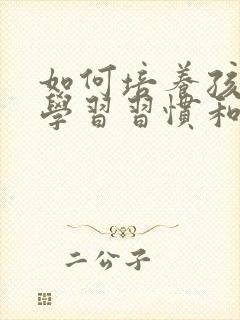 如何培養孩
學習習慣和
二公子